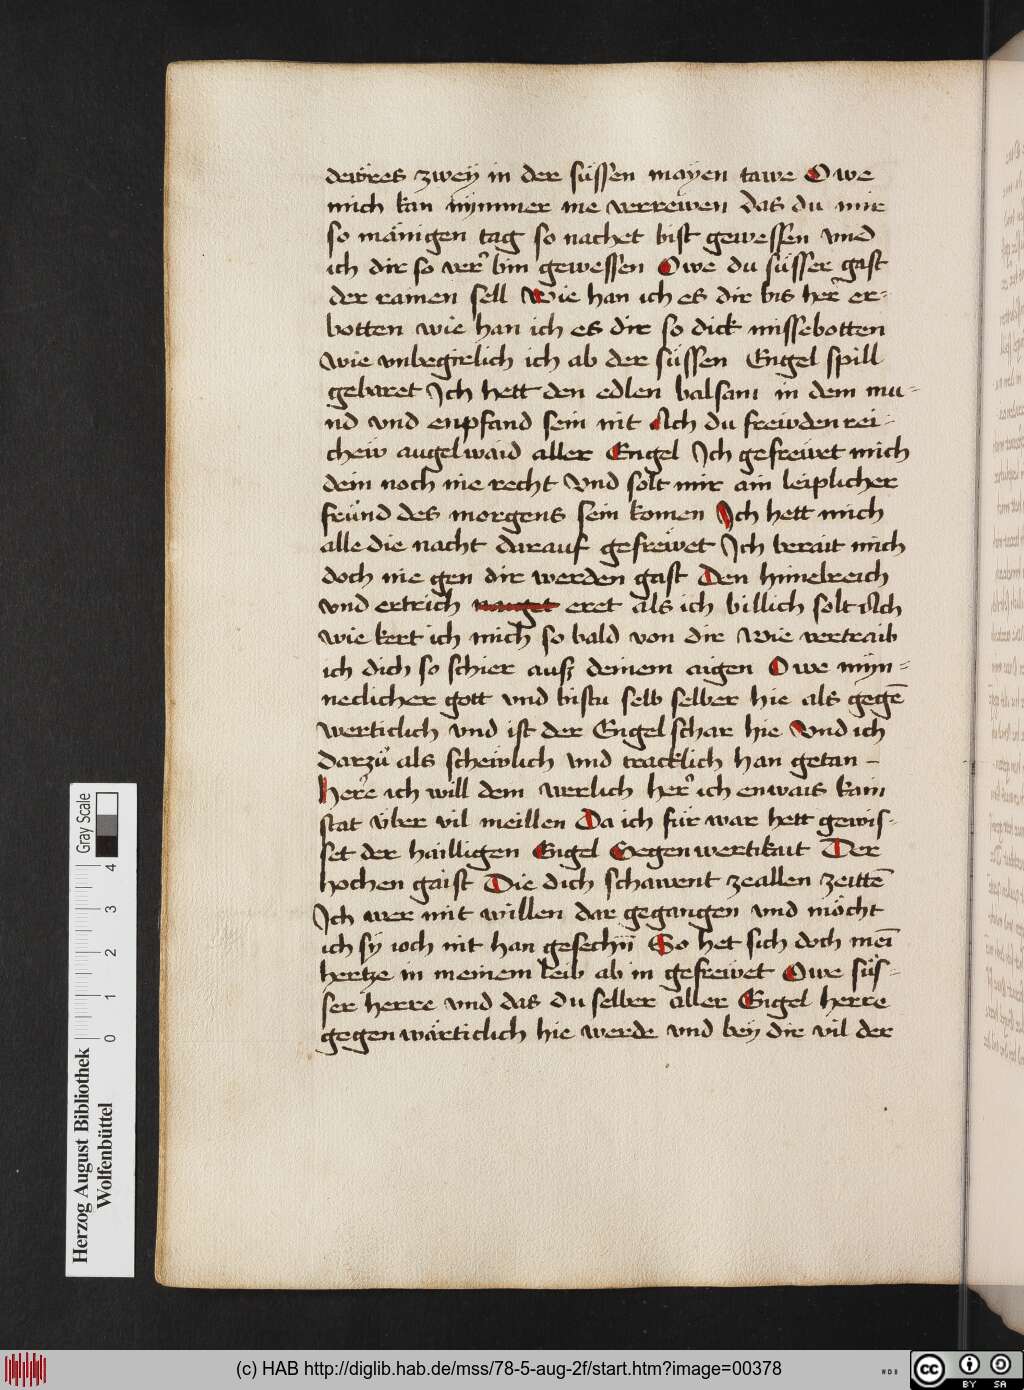 dewres zwey in der süssen mayen tawe Owe
mich kan nymmer me verrewen das du mir
so mänigen tag so nachet bist gewessen vnd
ich dir so ver bin gewessen Owe du süsser gast
der ramen sell Wie han ich es dir bis her er-
botten wie han ich es dir so dick missebotten
wie vnbegirlich ich ab der süssen Engel spill
gebaret Ich hett den edlen balsam in dem mu-
nd vnd enpfand sein nit Ach du frewden rei-
chew augelwaid aller Engel Ich gefrewet mich
dein noch nie recht Vnd solt mir ain leiplicher
fründ des morgens sein komen Ich hett mich
alle die nacht darauf gefrewet Ich berait mich
doch nie gen dir werden gast Den himelreich
vnd ertrich nauget eret als ich billich solt Ach
wie kert ich mich so bald von dir Wie vertraib
ich dich so schier ausz deinem aigen Owe myn-
neclicher gott vnd bistu selb selber hie als gegē
werticlich vnd ist der Engel schar hie Vnd ich
darzů als schewlich vnd tracklich han getan –
Here ich will dem werlich her ich enwais kain
stat über vil meillen Da ich für war hett gewis-
set der hailligen Engel Gegenwertikait Der
hochen gaist Die dich schawent zeallen zeittē
Ich wer mit willen dar gegangen vnd möcht
ich sy ioch nit han gesechn So het sich doch mei
hertze in meinem leib ab in gefrewet Owe süs-
ser herre vnd das du selber aller Engel herre
gegenwärticlich hie werde vnd bey dir vil der
Gray Scale
4 3 2 1 0
Herzog August Bibliothek
Wolfenbüttel
(c) HAB http://diglib.hab.de/mss/78-5-aug-2f/start.htm?image=00378
WDB
cc BY SA